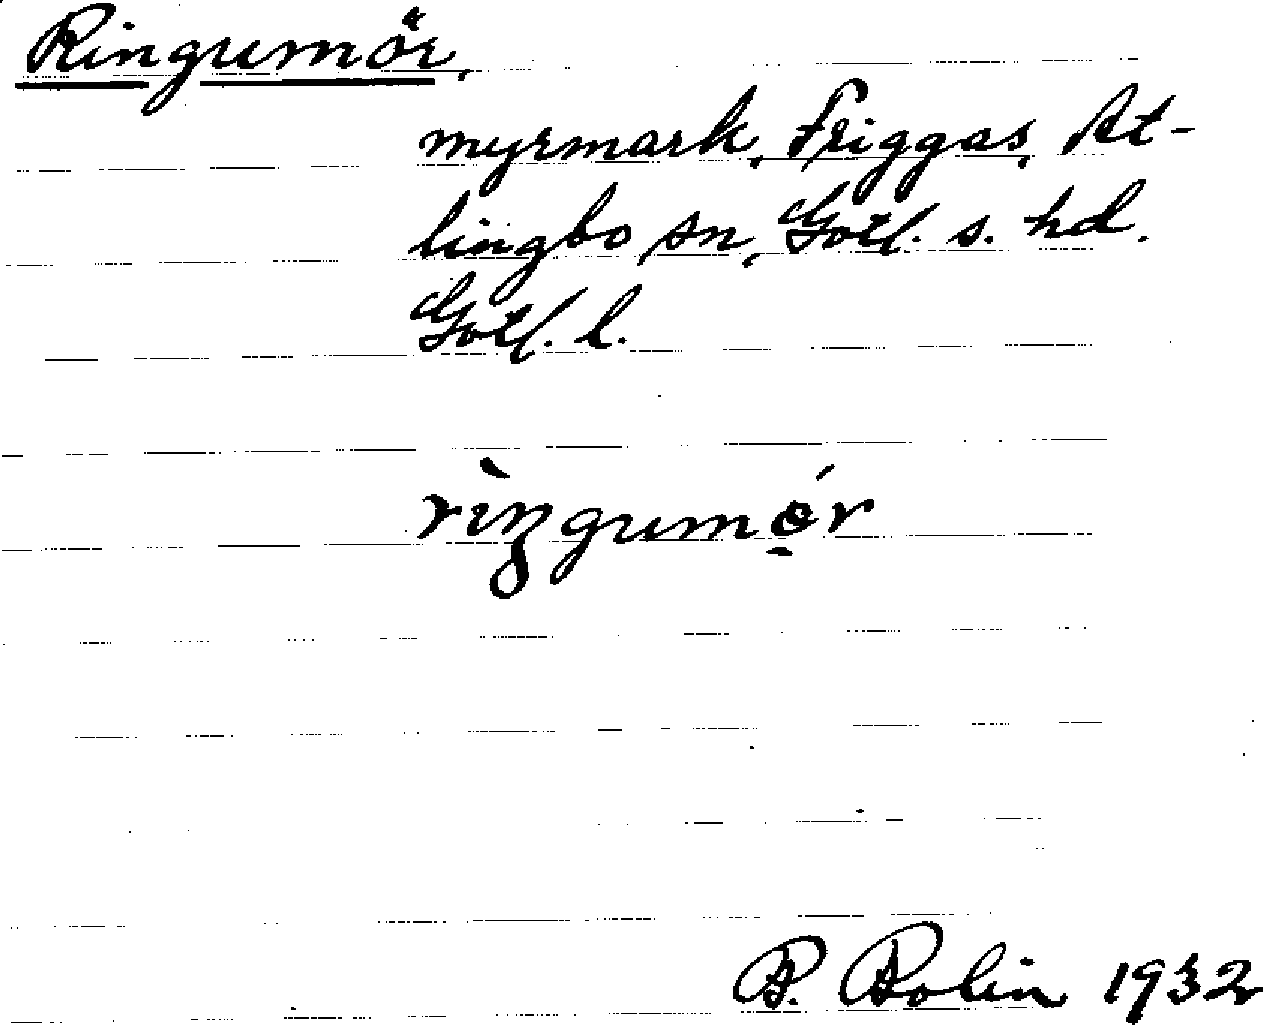 Ringumör,
myrmark, Friggas, At-
lingbo sn, Gotl. s. hd.
Gotl. l.
rìŋgumǿ̠r
B. Bolin 1932